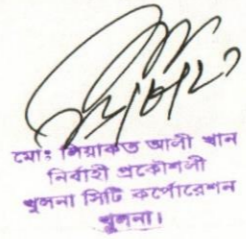 মোঃ লিয়াকত আলী খান
নির্বাহী প্রকৌশলী
খুলনা সিটি কর্পোরেশন
খুলনা।